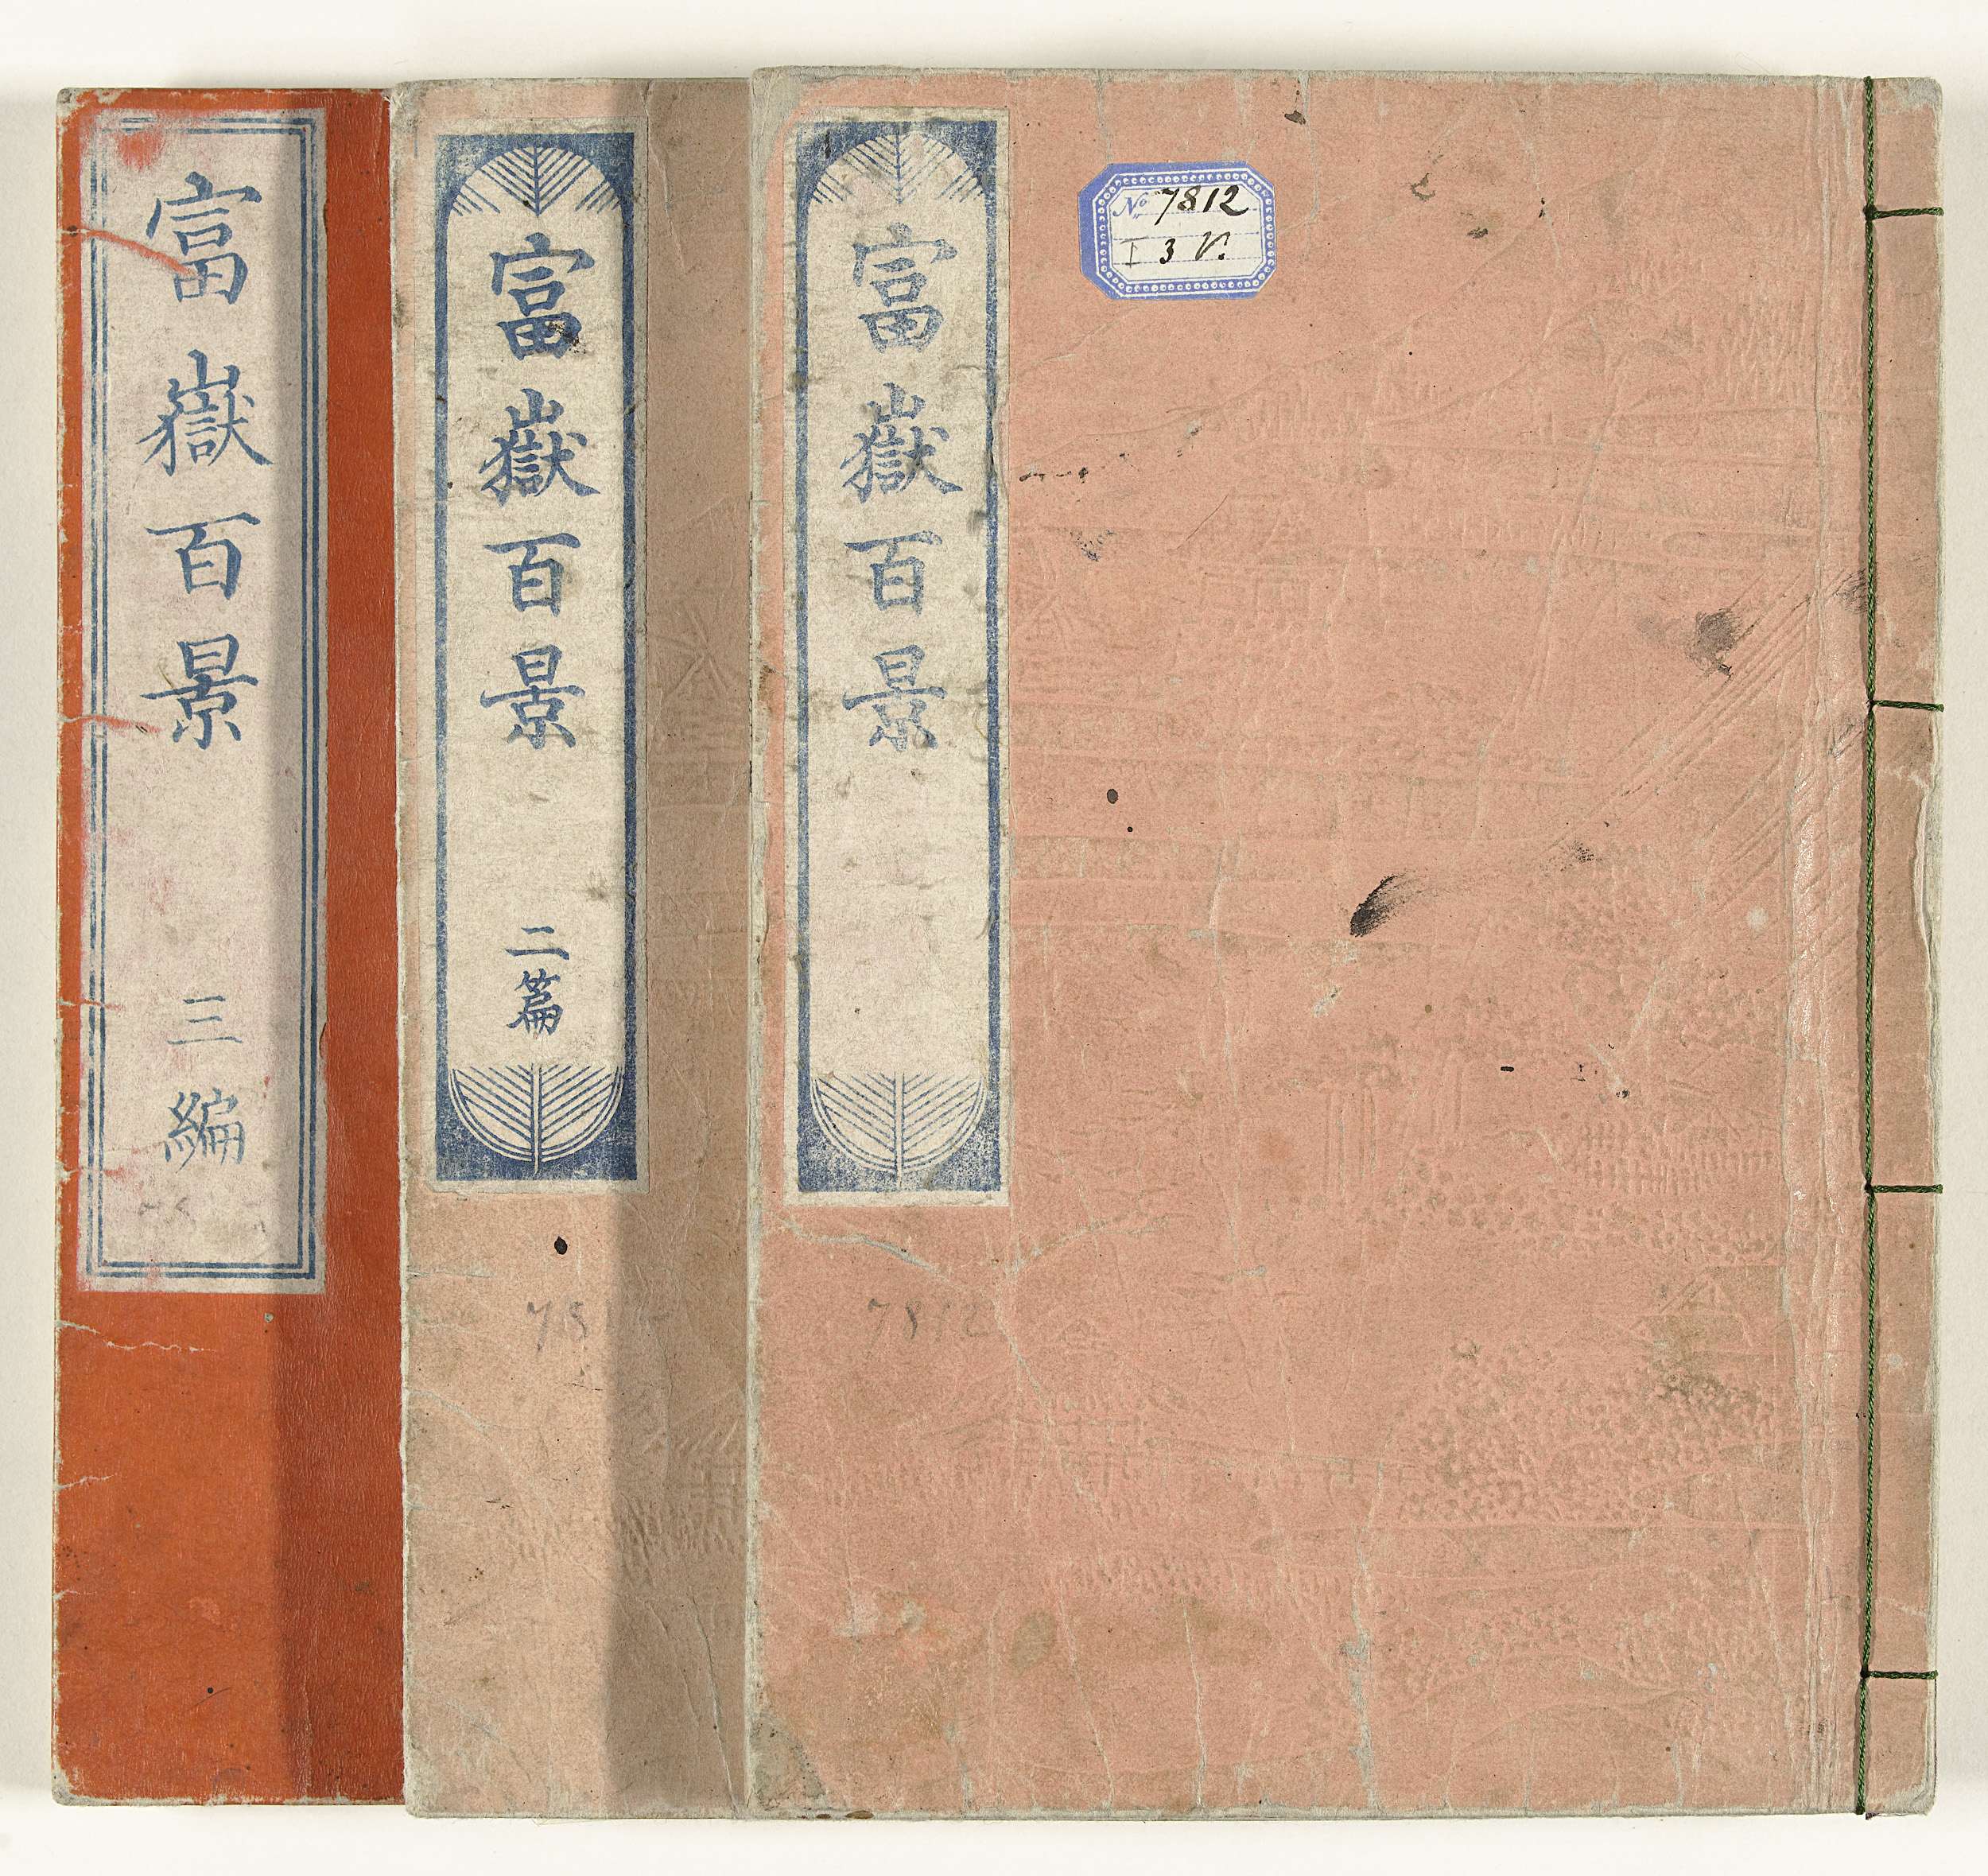 富嶽百景
No 7812
I 3 V.
7812
富嶽百景
二篇
78
富嶽百景
三編